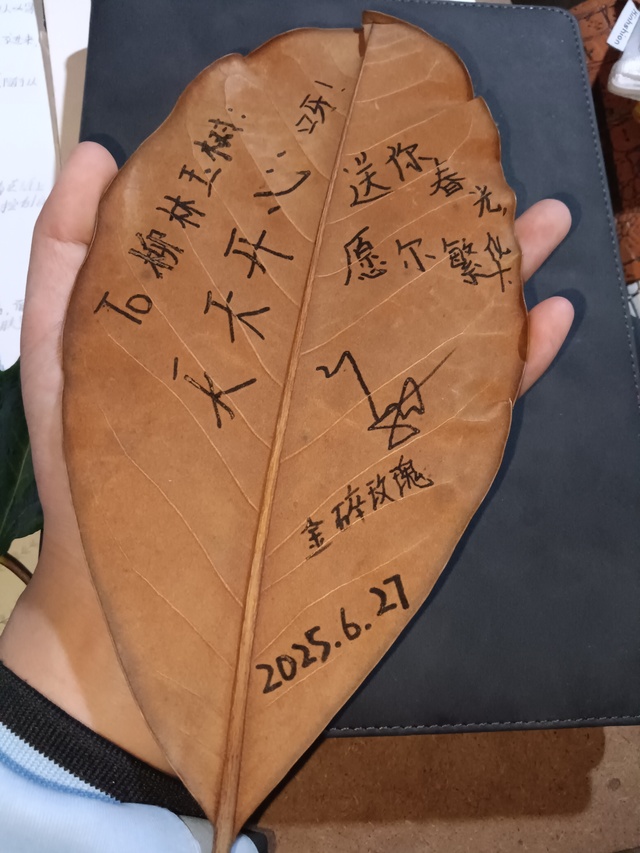 To 柳林玉树:
天天开心呀!
送你春光,
愿尔繁华
金碎玫瑰
2025.6.27